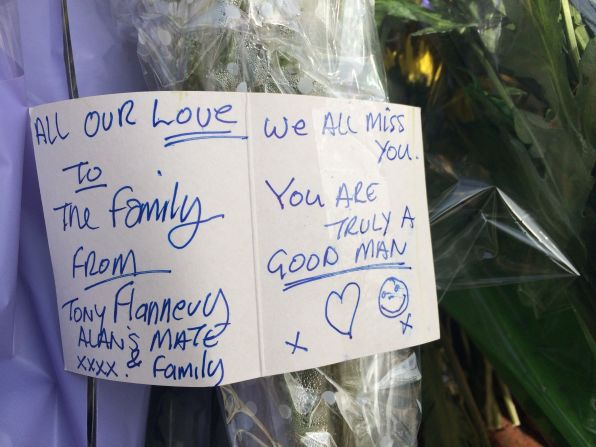 ALL OUR LOVE
TO
THE family
FROM
TONY Flannery
ALAN'S MATE
xxxx. & family
We ALL MISS
YOU.
YOU ARE
TRULY A
GOOD MAN
x
x